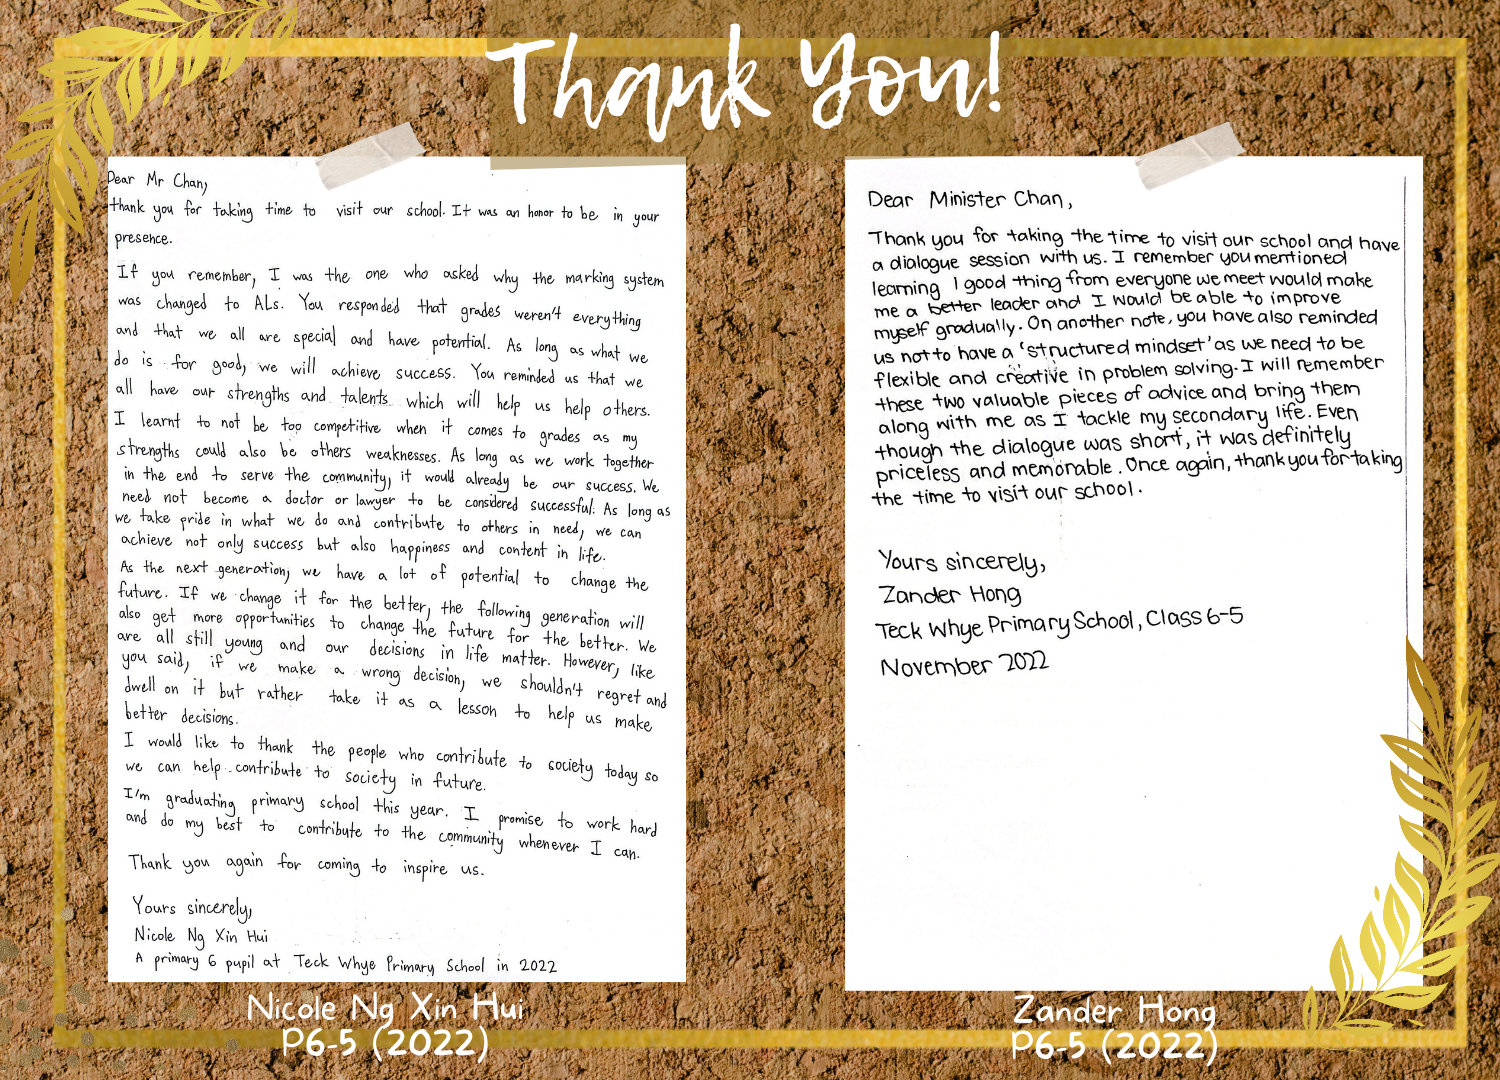 Thank You!
Dear Mr Chan,
thank you for taking time to visit our school. It was an honor to be in your
presence.
If you remember, I was the one who asked why the marking system
was changed to ALs. You responded that grades weren't everything
and that we all are special and have potential. As long as what we
do is for good, we will achieve success. You reminded us that we
all have our strengths and talents which will help us help others.
I learnt to not be too competitive when it comes to grades as my
strengths could also be others weaknesses. As long as we work together
in the end to serve the community, it would already be our success. We
need not become a doctor or lawyer to be considered successful. As long as
we take pride in what we do and contribute to others in need, we can
achieve not only success but also happiness and content in life.
As the next generation, we have a lot of potential to change the
future. If we change it for the better, the following generation will
also get more opportunities to change the future for the better. We
are all still young and our decisions in life matter. However, like
you said, if we make a wrong decision, we shouldn't regret and
dwell on it but rather take it as a lesson to help us make
better decisions.
I would like to thank the people who contribute to society today so
we can help contribute to society in future.
I'm graduating primary school this year. I promise to work hard
and do my best to contribute to the community whenever I can.
Thank you again for coming to inspire us.
Yours sincerely,
Nicole Ng Xin Hui
A primary 6 pupil at Teck Whye Primary School in 2022
Nicole Ng Xin Hui
P6-5 (2022)
Dear Minister Chan,
Thank you for taking the time to visit our school and have
a dialogue session with us. I remember you mentioned
learning 1 good thing from everyone we meet would make
me a better leader and I would be able to improve
myself gradually. On another note, you have also reminded
us not to have a 'structured mindset' as we need to be
flexible and creative in problem solving. I will remember
these two valuable pieces of advice and bring them
along with me as I tackle my secondary life. Even
though the dialogue was short, it was definitely
priceless and memorable. Once again, thank you for taking
the time to visit our school.
Yours sincerely,
Zander Hong
Teck Whye Primary School, Class 6-5
November 2022
Zander Hong
P6-5 (2022)